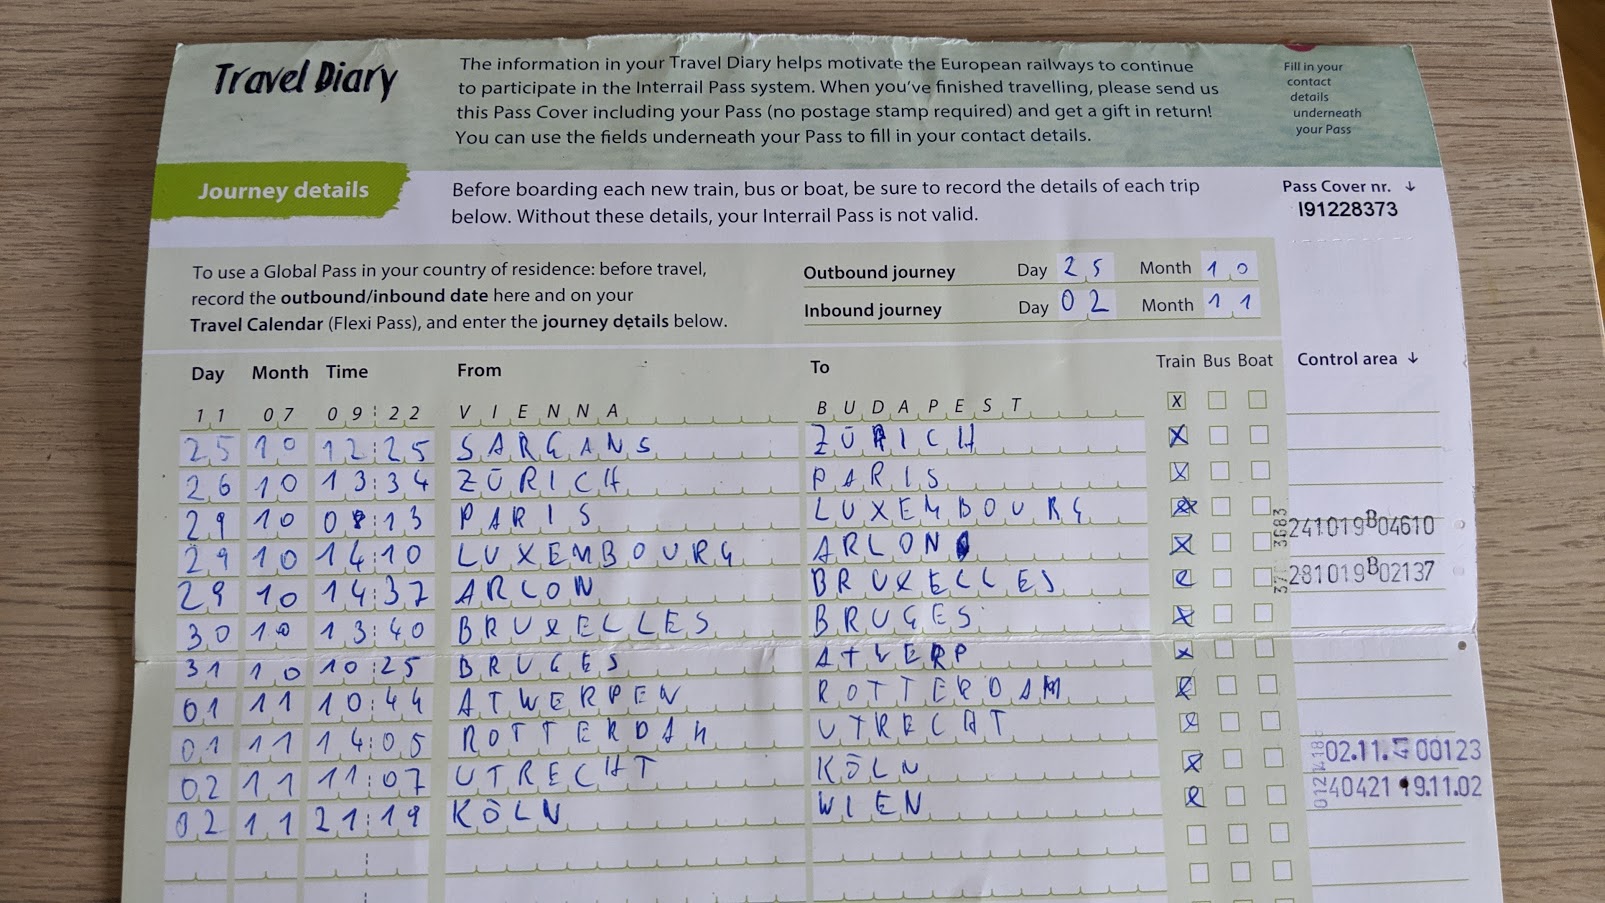 Travel Diary
The information in your Travel Diary helps motivate the European railways to continue
to participate in the Interrail Pass system. When you've finished travelling, please send us
this Pass Cover including your Pass (no postage stamp required) and get a gift in return!
You can use the fields underneath your Pass to fill in your contact details.
Fill in your
contact
details
underneath
your Pass
Journey details
Before boarding each new train, bus or boat, be sure to record the details of each trip
below. Without these details, your Interrail Pass is not valid.
Pass Cover nr. ↓
I91228373
To use a Global Pass in your country of residence: before travel,
record the outbound/inbound date here and on your
Travel Calendar (Flexi Pass), and enter the journey details below.
Outbound journey Day 25 Month 10
Inbound journey Day 02 Month 11
Day Month Time From To Train Bus Boat Control area ↓
11 07 09:22 VIENNA BUDAPEST X
25 10 12:25 SARGANS ZÜRICH X
26 10 13:34 ZÜRICH PARIS X
29 10 13 PARIS LUXEMBOURG X
241019B04610
29 10 14:10 LUXEMBOURG ARLON X
281019B02137
29 10 14:37 ARLON BRUXELLES X
30 10 13:40 BRUXELLES BRUGES X
31 10 10:25 BRUGES ATWERP X
01 11 10:44 ATWERPEN ROTTERDAM X
01 11 14:05 ROTTERDAM UTRECHT X
02.11. 00123
02 11 11:07 UTRECHT KÖLN X
40421 19.11.02
02 11 21:19 KÖLN WIEN X